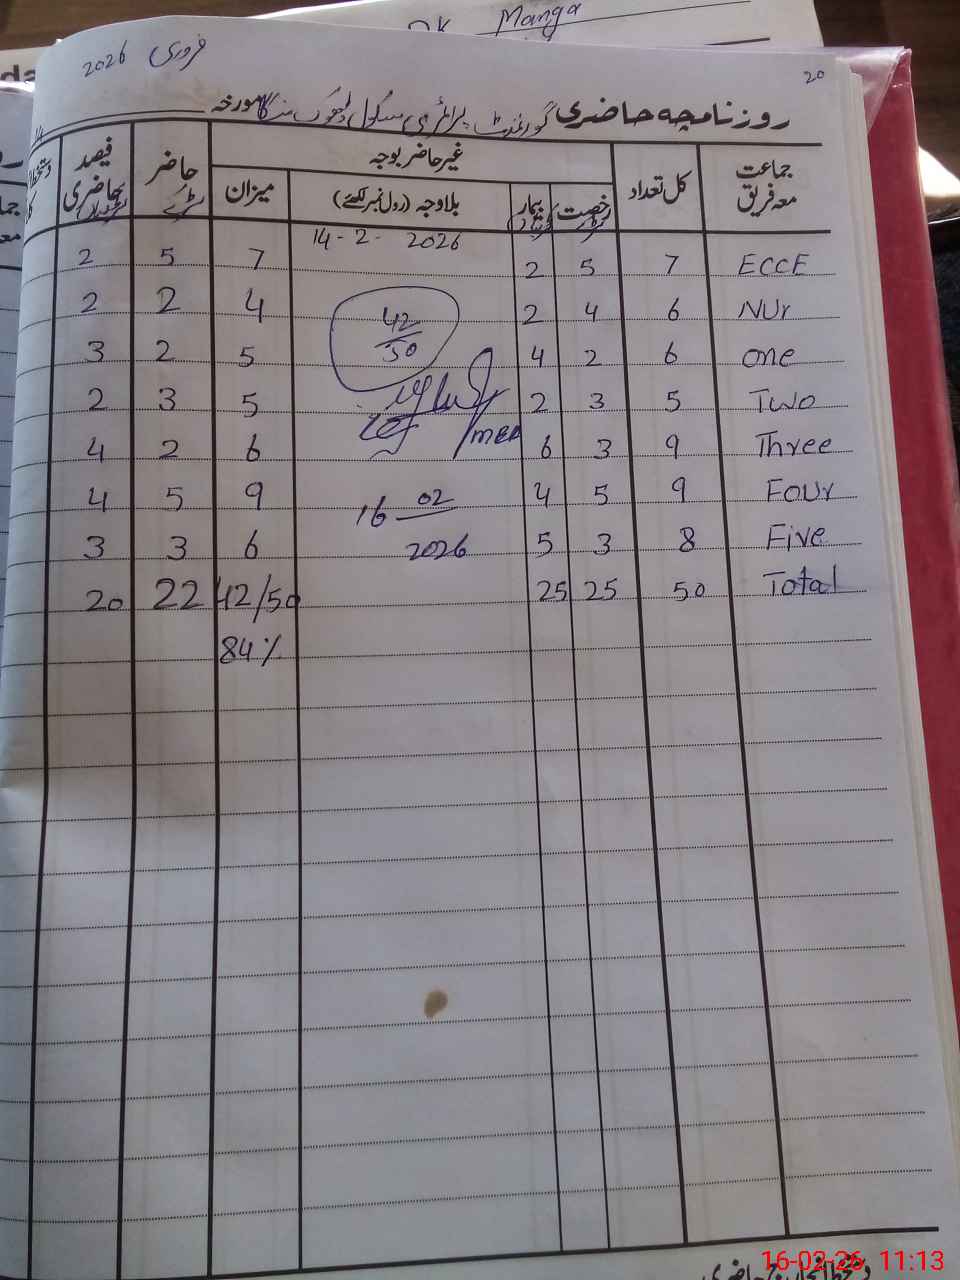 Manga
فروری 2026
20
روزنامچہ حاضری گورنمنٹ پرائمری سکول منگا مورخہ
جماعت معہ فریق کل تعداد غیر حاضر بوجہ حاضر فیصد حاضری
رخصت بیمار بلاوجہ (رول نمبر لکھئے) میزان
14-2-2026
ECCE 7 5 2 7 5 2
NUr 6 4 2 4 2 2
42/50
one 6 2 4 5 2 3
TWO 5 3 2 5 3 2
Three 9 3 6 6 2 4
FOUr 9 5 4 9 5 4
16 02
2026
Five 8 3 5 6 3 3
Total 50 25 25 42/50 22 20
84%
16-02-26 11:13